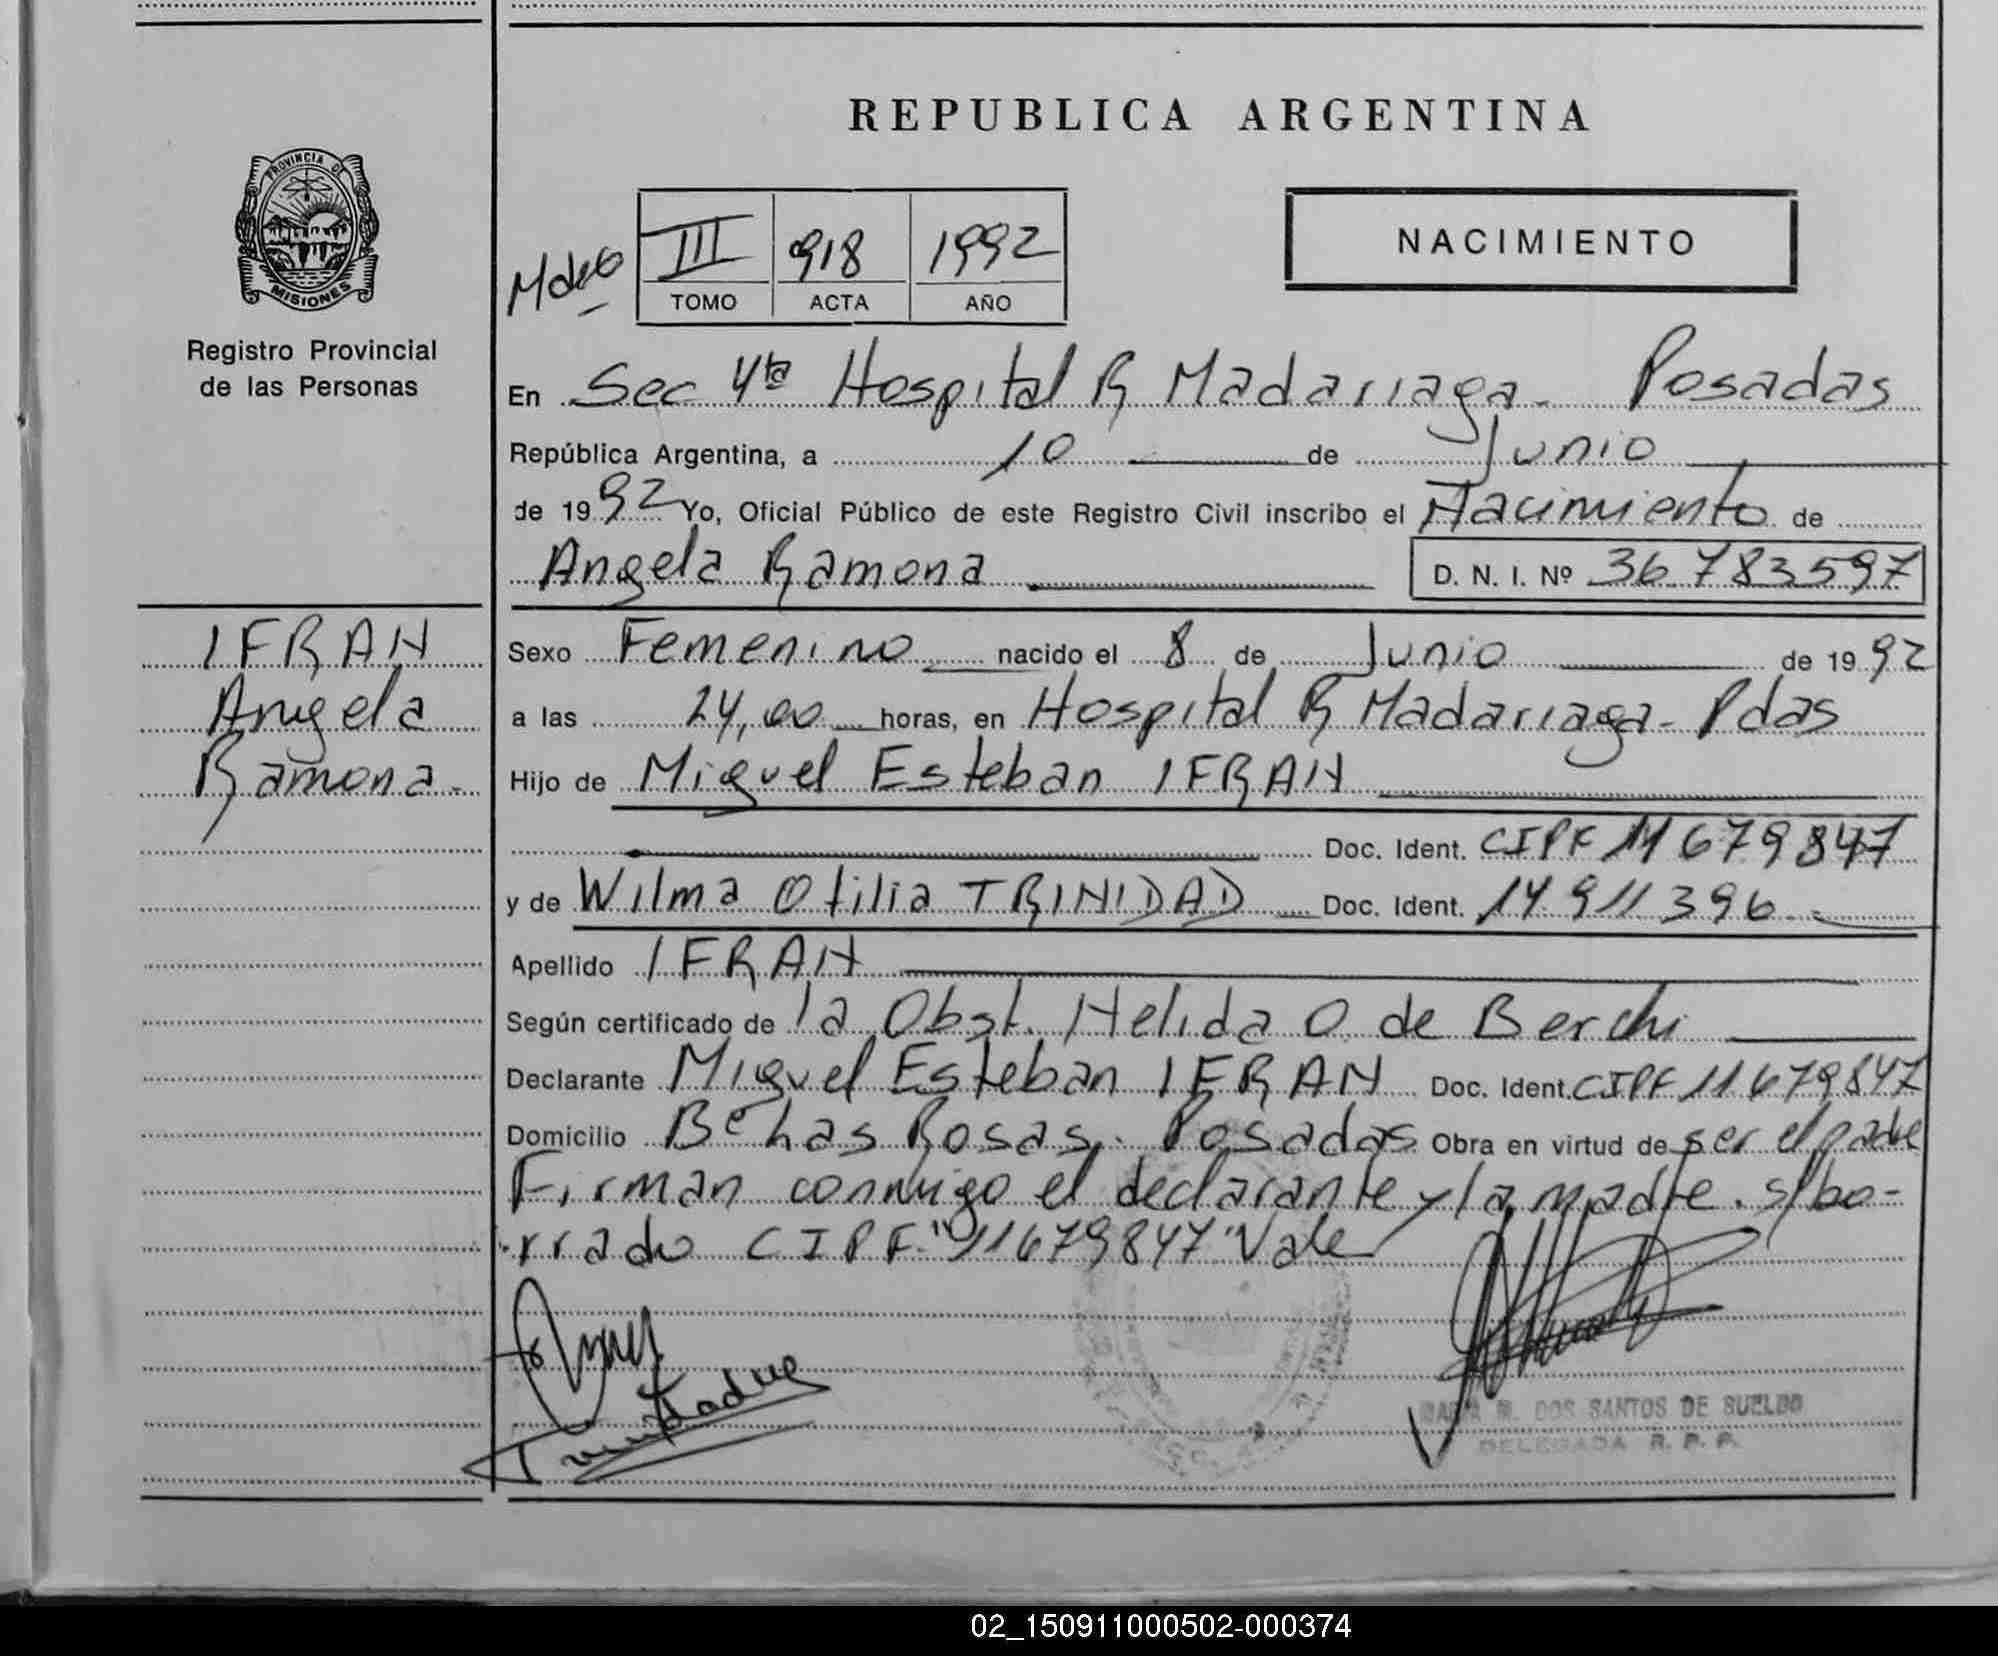 REPUBLICA ARGENTINA
PROVINCIA DE
MISIONES
Registro Provincial
de las Personas
III 918 1992
TOMO ACTA AÑO
NACIMIENTO
En Sec 4ta Hospital R Madariaga - Posadas
República Argentina, a 10 de Junio
de 1992 Yo, Oficial Público de este Registro Civil inscribo el Nacimiento de
Angela Ramona D. N. I. Nº 36 783597
IFRAN
Angela
Ramona.
Sexo Femenino nacido el 8 de Junio de 1992
a las 24,00 horas, en Hospital R Madariaga - Pdas
Hijo de Miguel Esteban IFRAN
Doc. Ident. CIPF 11 679847
y de Wilma Otilia TRINIDAD Doc. Ident. 14 911 396
Apellido IFRAN
Según certificado de la Obst. Helida O de Berchi
Declarante Miguel Esteban IFRAN Doc. Ident. CIPF 11 679847
Domicilio Rosas. Posadas Obra en virtud de ser el padre
Firman conmigo el declarante y la madre. s/bo-
rrado CIPF "11679847" Vale
M. DOS SANTOS DE SUELDO
DELEGADA R. P. P.
02_150911000502-000374